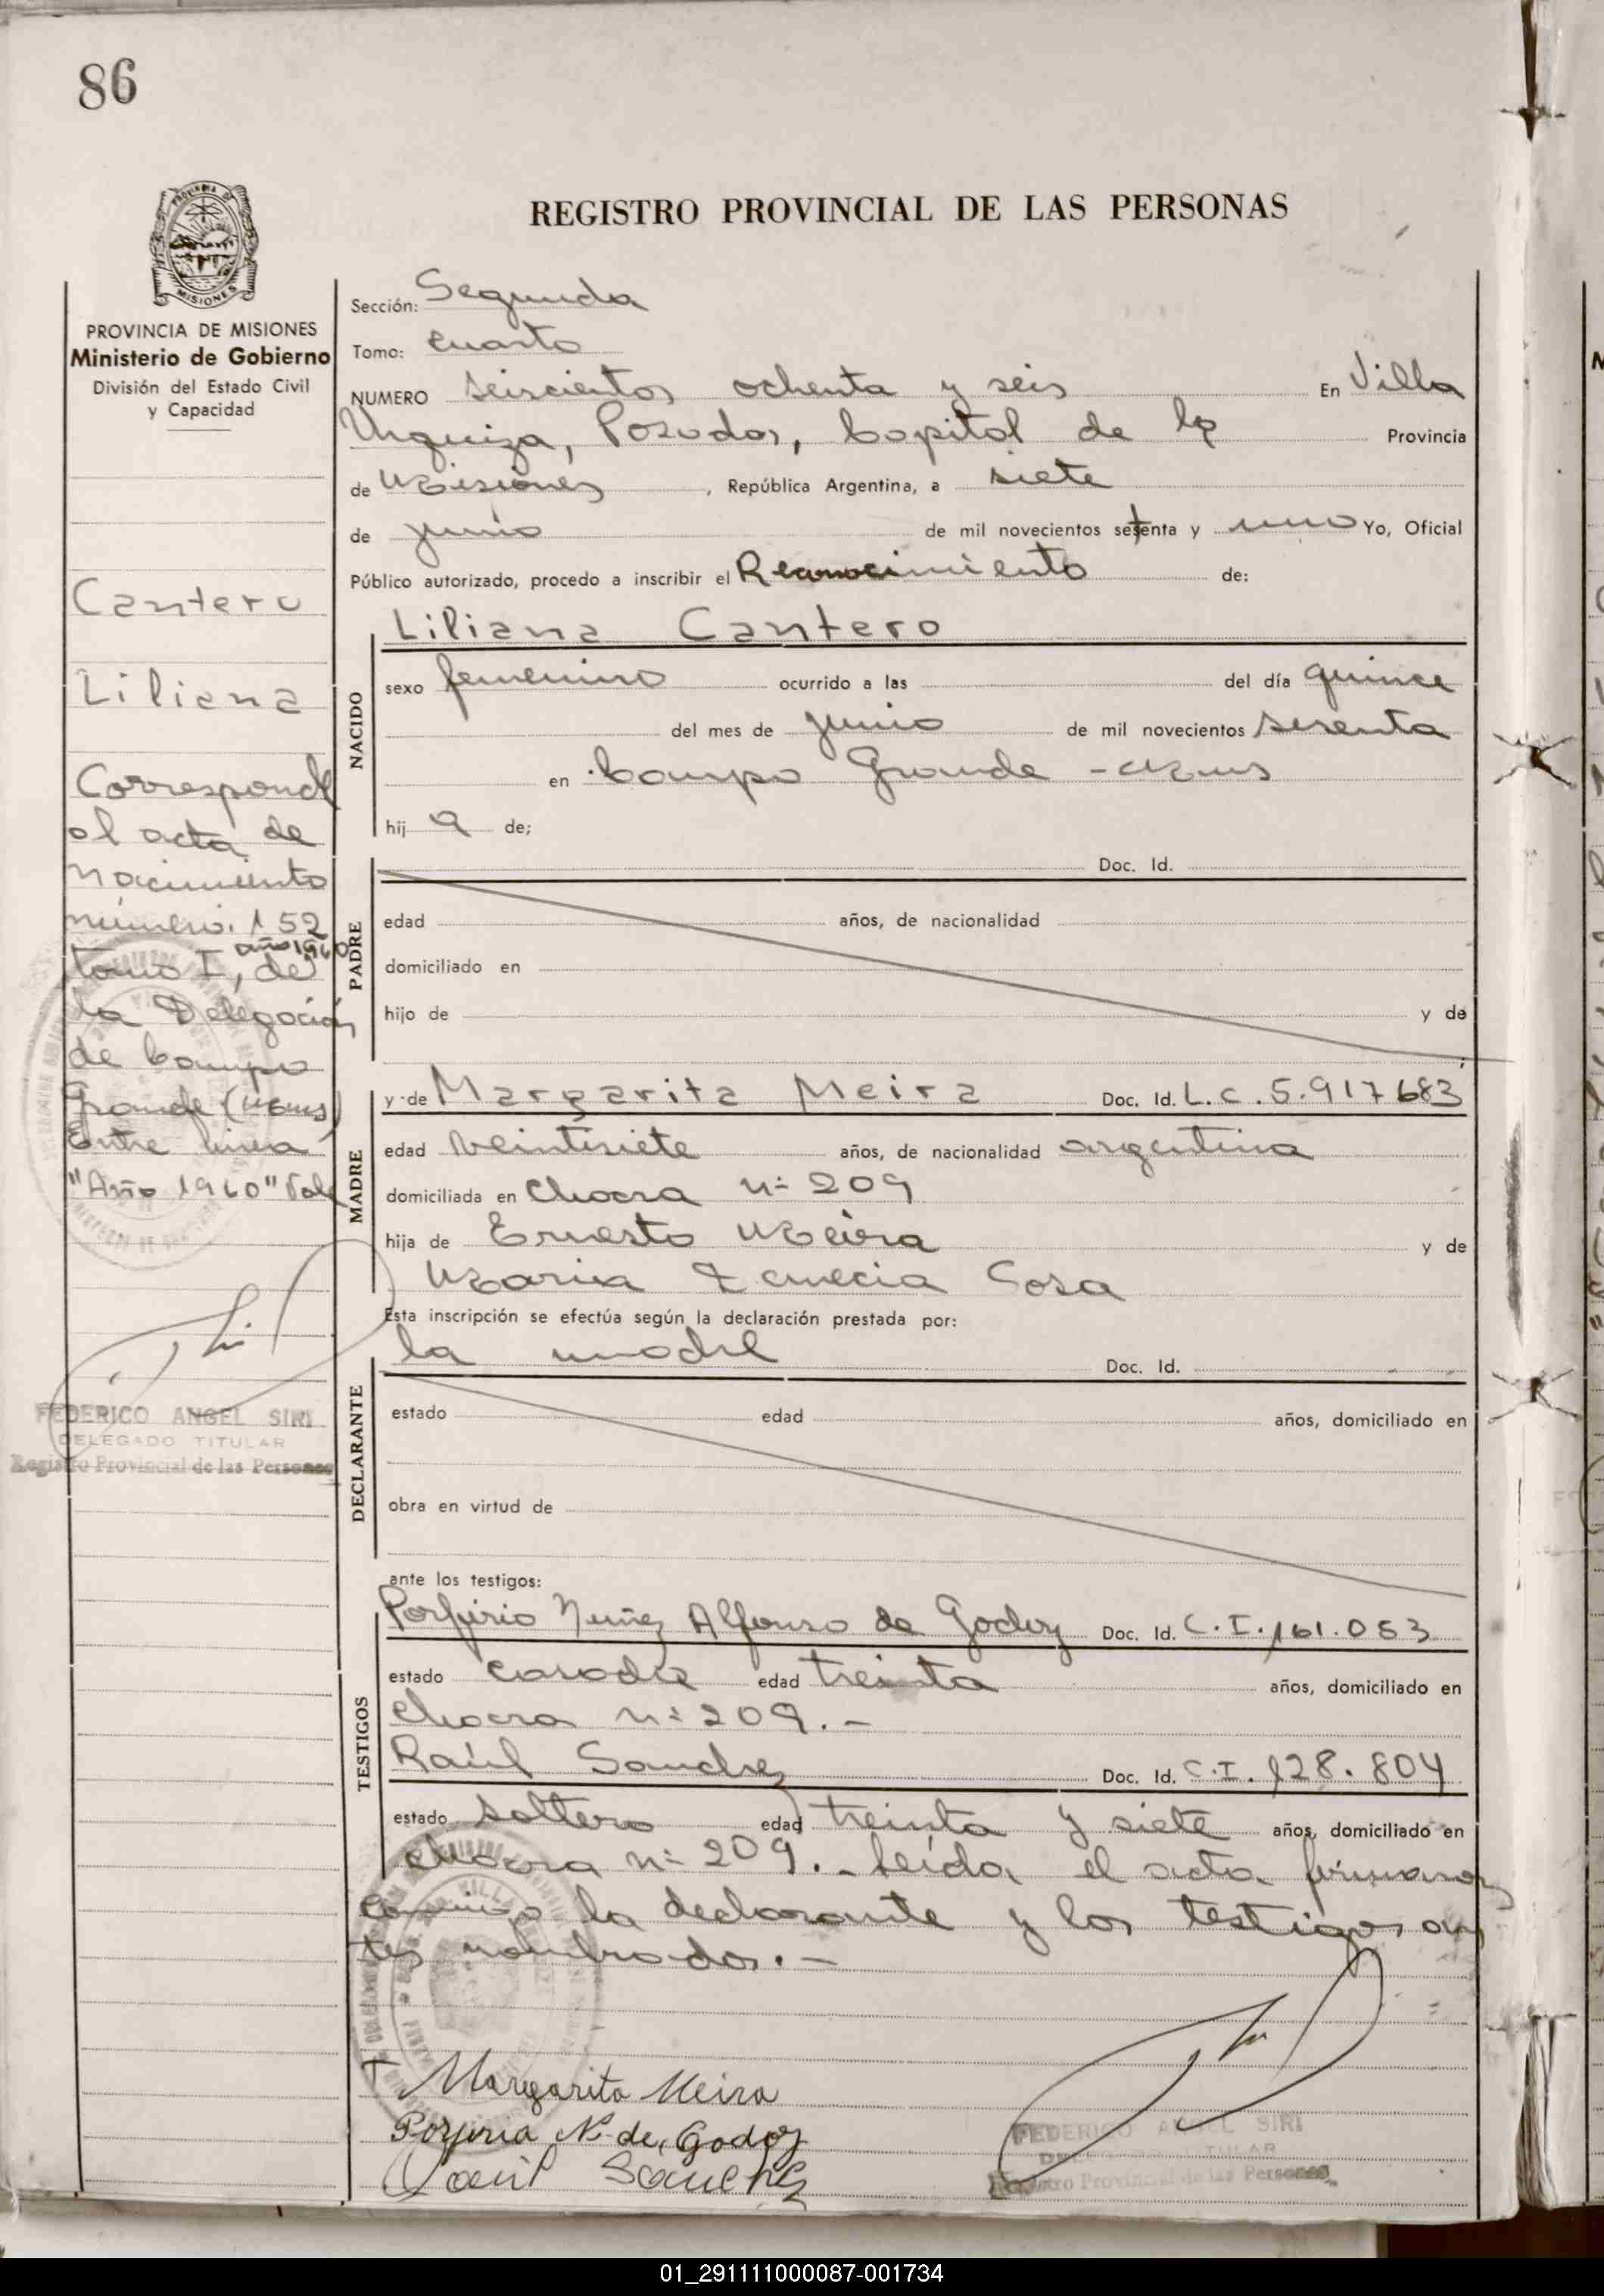 86
REGISTRO PROVINCIAL DE LAS PERSONAS
PROVINCIA DE MISIONES
Ministerio de Gobierno
División del Estado Civil
y Capacidad
Cantero
Liliana
Corresponde
al acta de
nacimiento
número. 152
año 1960
tomo I, de
la Delegación
de Campo
Grande (Mnes)
Entre linea
"Año 1960" Vale
FEDERICO ANGEL SIRI
DELEGADO TITULAR
Registro Provincial de las Personas
Sección: Segunda
Tomo: cuarto
NUMERO seiscientos ochenta y seis En Villa
Urquiza, Posadas, Capital de la Provincia
de Misiones, República Argentina, a siete
de junio de mil novecientos setenta y uno Yo, Oficial
Público autorizado, procedo a inscribir el Reconocimiento de:
Liliana Cantero
NACIDO
sexo femenino ocurrido a las del día quince
del mes de junio de mil novecientos sesenta
en Campo Grande - Mnes
hij a de;
PADRE
Doc. Id.
edad años, de nacionalidad
domiciliado en
hijo de y de
MADRE
y de Margarita Meira Doc. Id. L.C. 5.917683
edad veintisiete años, de nacionalidad argentina
domiciliada en Chacra nº 209
hija de Ernesto Meira y de
Maria Sosa
Esta inscripción se efectúa según la declaración prestada por:
la madre Doc. Id.
DECLARANTE
estado edad años, domiciliado en
obra en virtud de
ante los testigos:
TESTIGOS
Porfirio Nuñez Alfonso de Godoy Doc. Id. C.I. 161.053
estado edad treinta años, domiciliado en
Chacra nº 209.-
Raúl Sanchez Doc. Id. C.I. 128.804
estado soltero edad treinta y siete años, domiciliado en
chacra nº 209.- Leída el acta firmaron
conmigo la declarante y los testigos an
tes nombrados.-
Margarita Meira
Porfiria N. de Godoy
Raúl Sanchez
FEDERICO ANGEL SIRI
DELEGADO TITULAR
Registro Provincial de las Personas
01_291111000087-001734